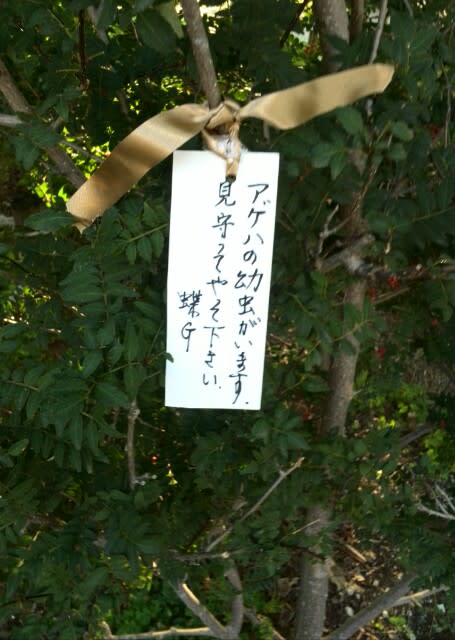 アゲハの幼虫がいます.
見守ってやって下さい.
蝶G